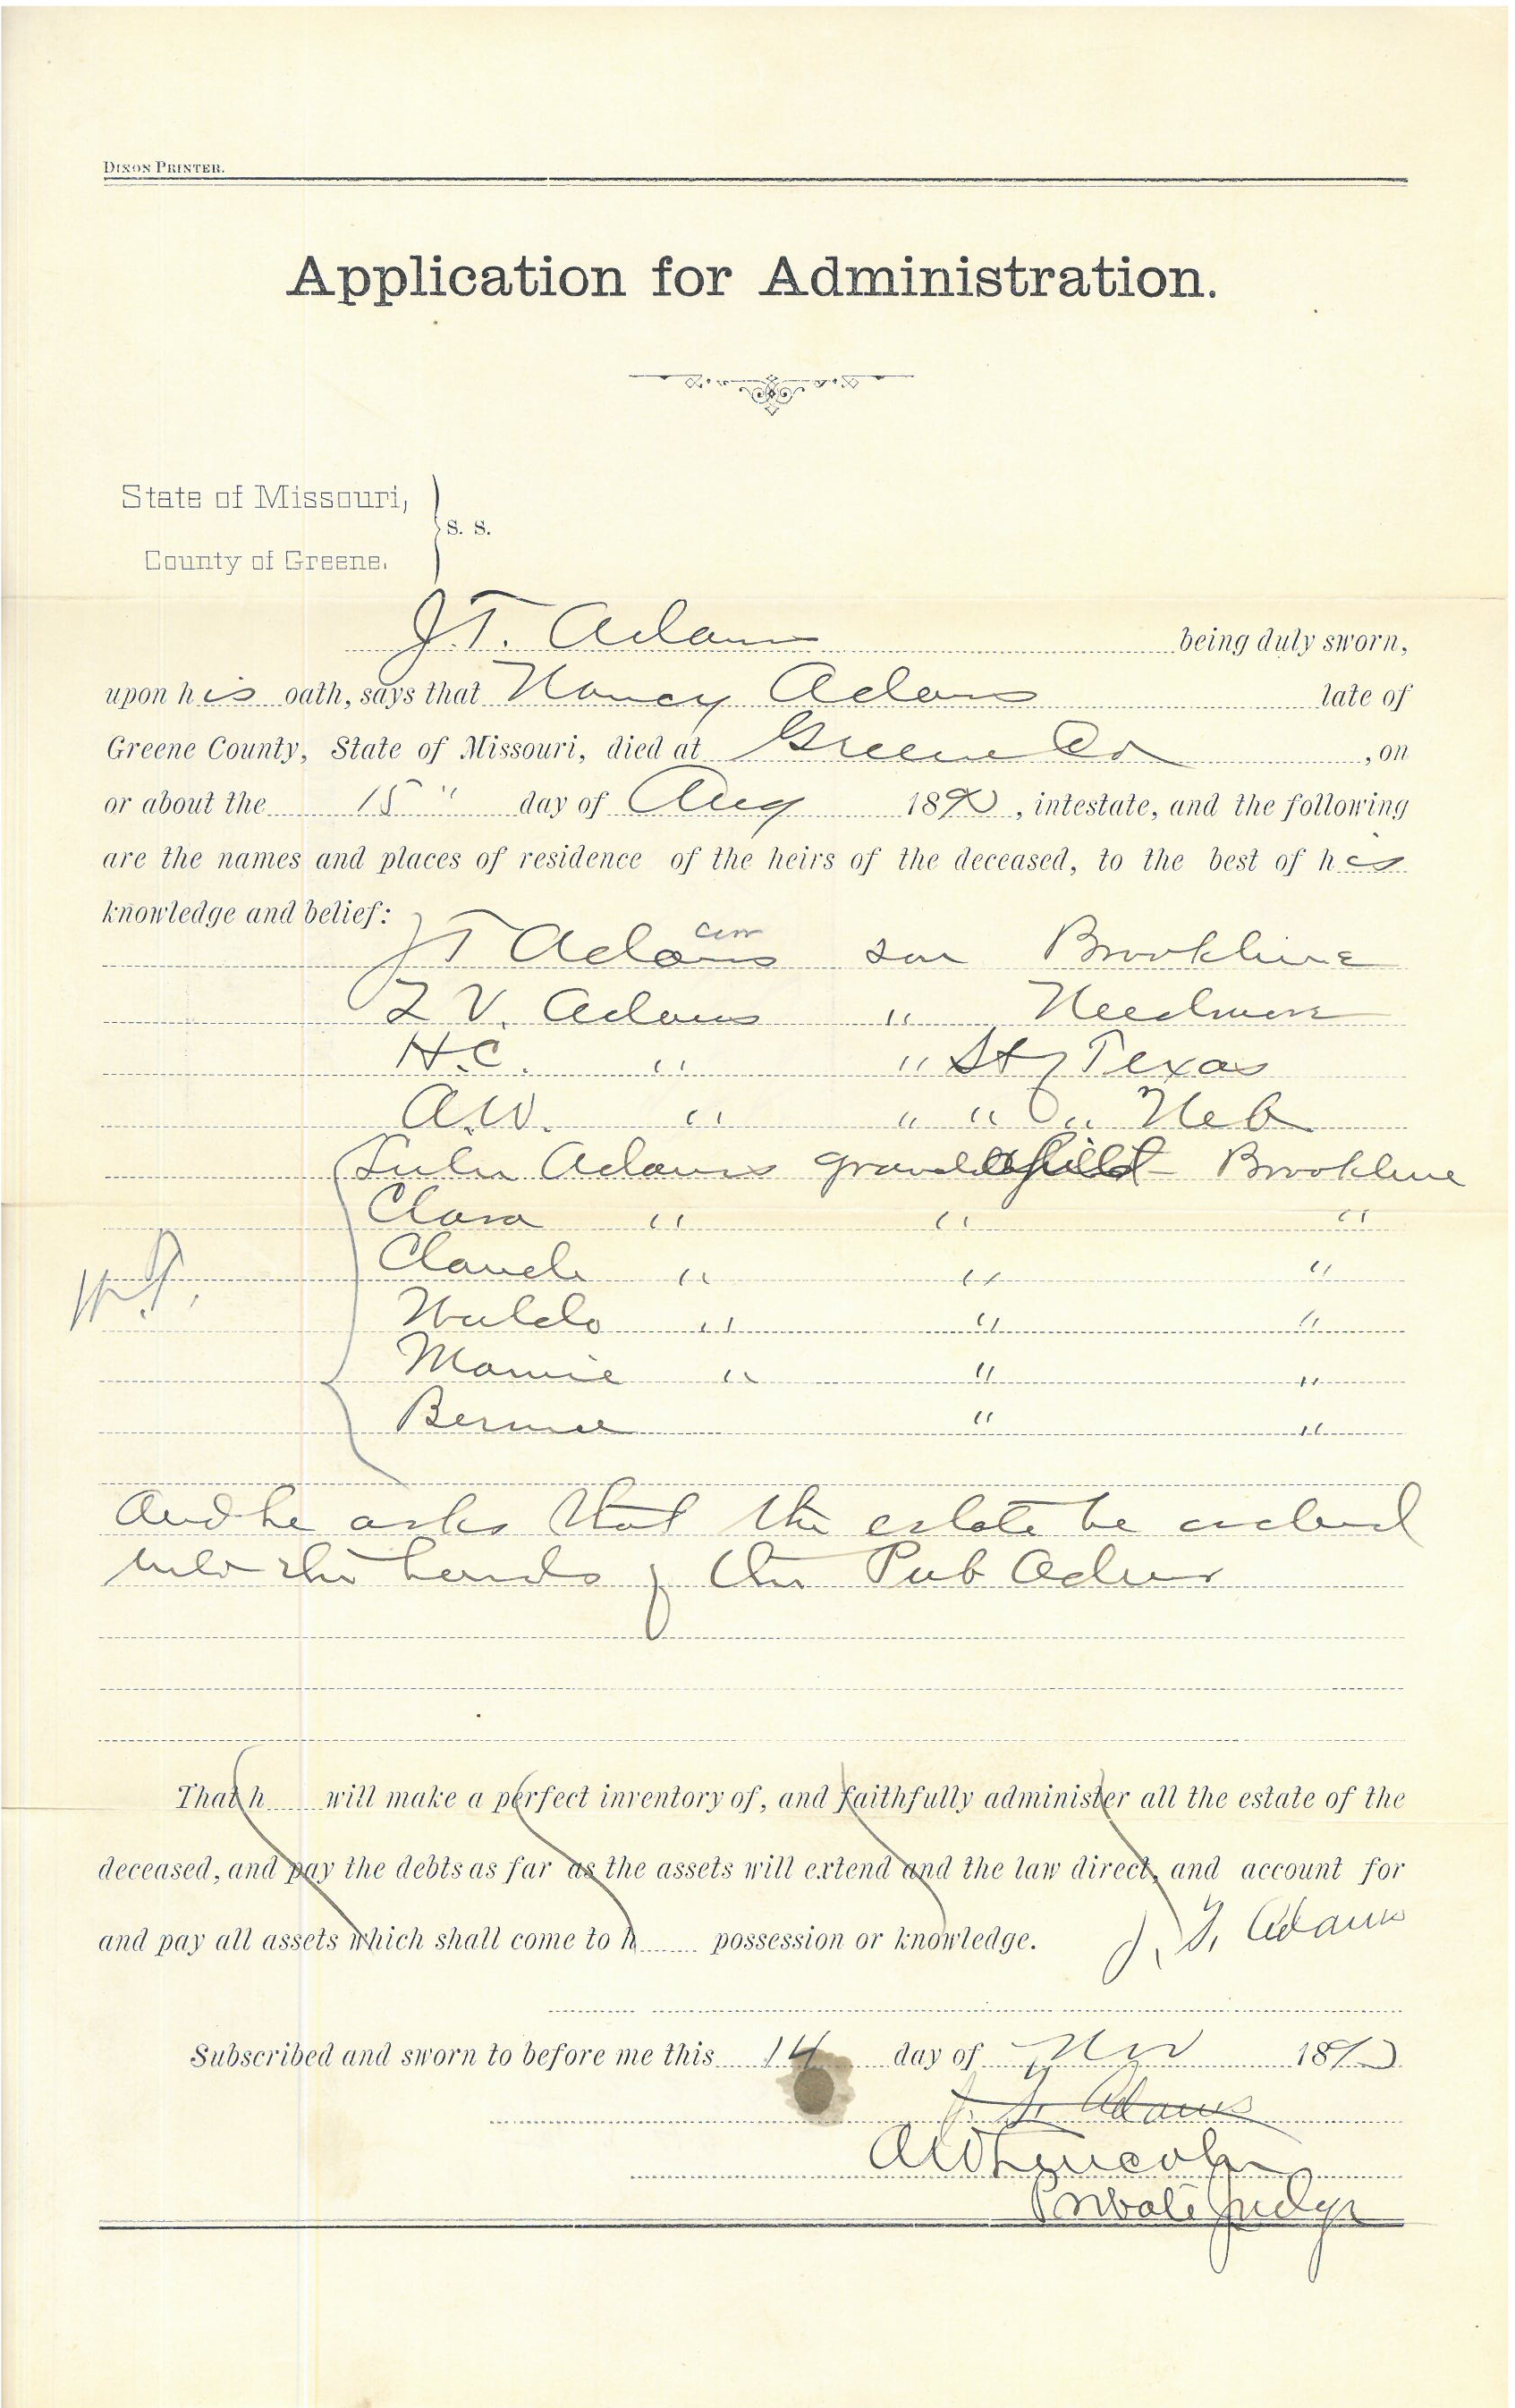 DIXON PRINTER.
Application for Administration.
State of Missouri,
S. S.
County of Greene.
J.T. Adams being duly sworn,
upon his oath, says that Nancy Adams late of
Greene County, State of Missouri, died at Greene Co, on
or about the 15" day of Aug 1890, intestate, and the following
are the names and places of residence of the heirs of the deceased, to the best of his
knowledge and belief:
J T Adams son Brookline
Z V. Adams " Needmore
H.C. " " St of Texas
A.W. " " " " Neb
Lulu Adams grandchild Brookline
Clara " " "
Claude " " "
Waldo " " "
Mamie " " "
Bernice " "
And he asks that the estate be ordered
into the hands of the Pub Admr
That h will make a perfect inventory of, and faithfully administer all the estate of the
deceased, and pay the debts as far as the assets will extend and the law direct, and account for
and pay all assets which shall come to h possession or knowledge.
J. T. Adams
Subscribed and sworn to before me this 14 day of Nov 1890
J. T. Adams
A W Lincoln
Probate Judge